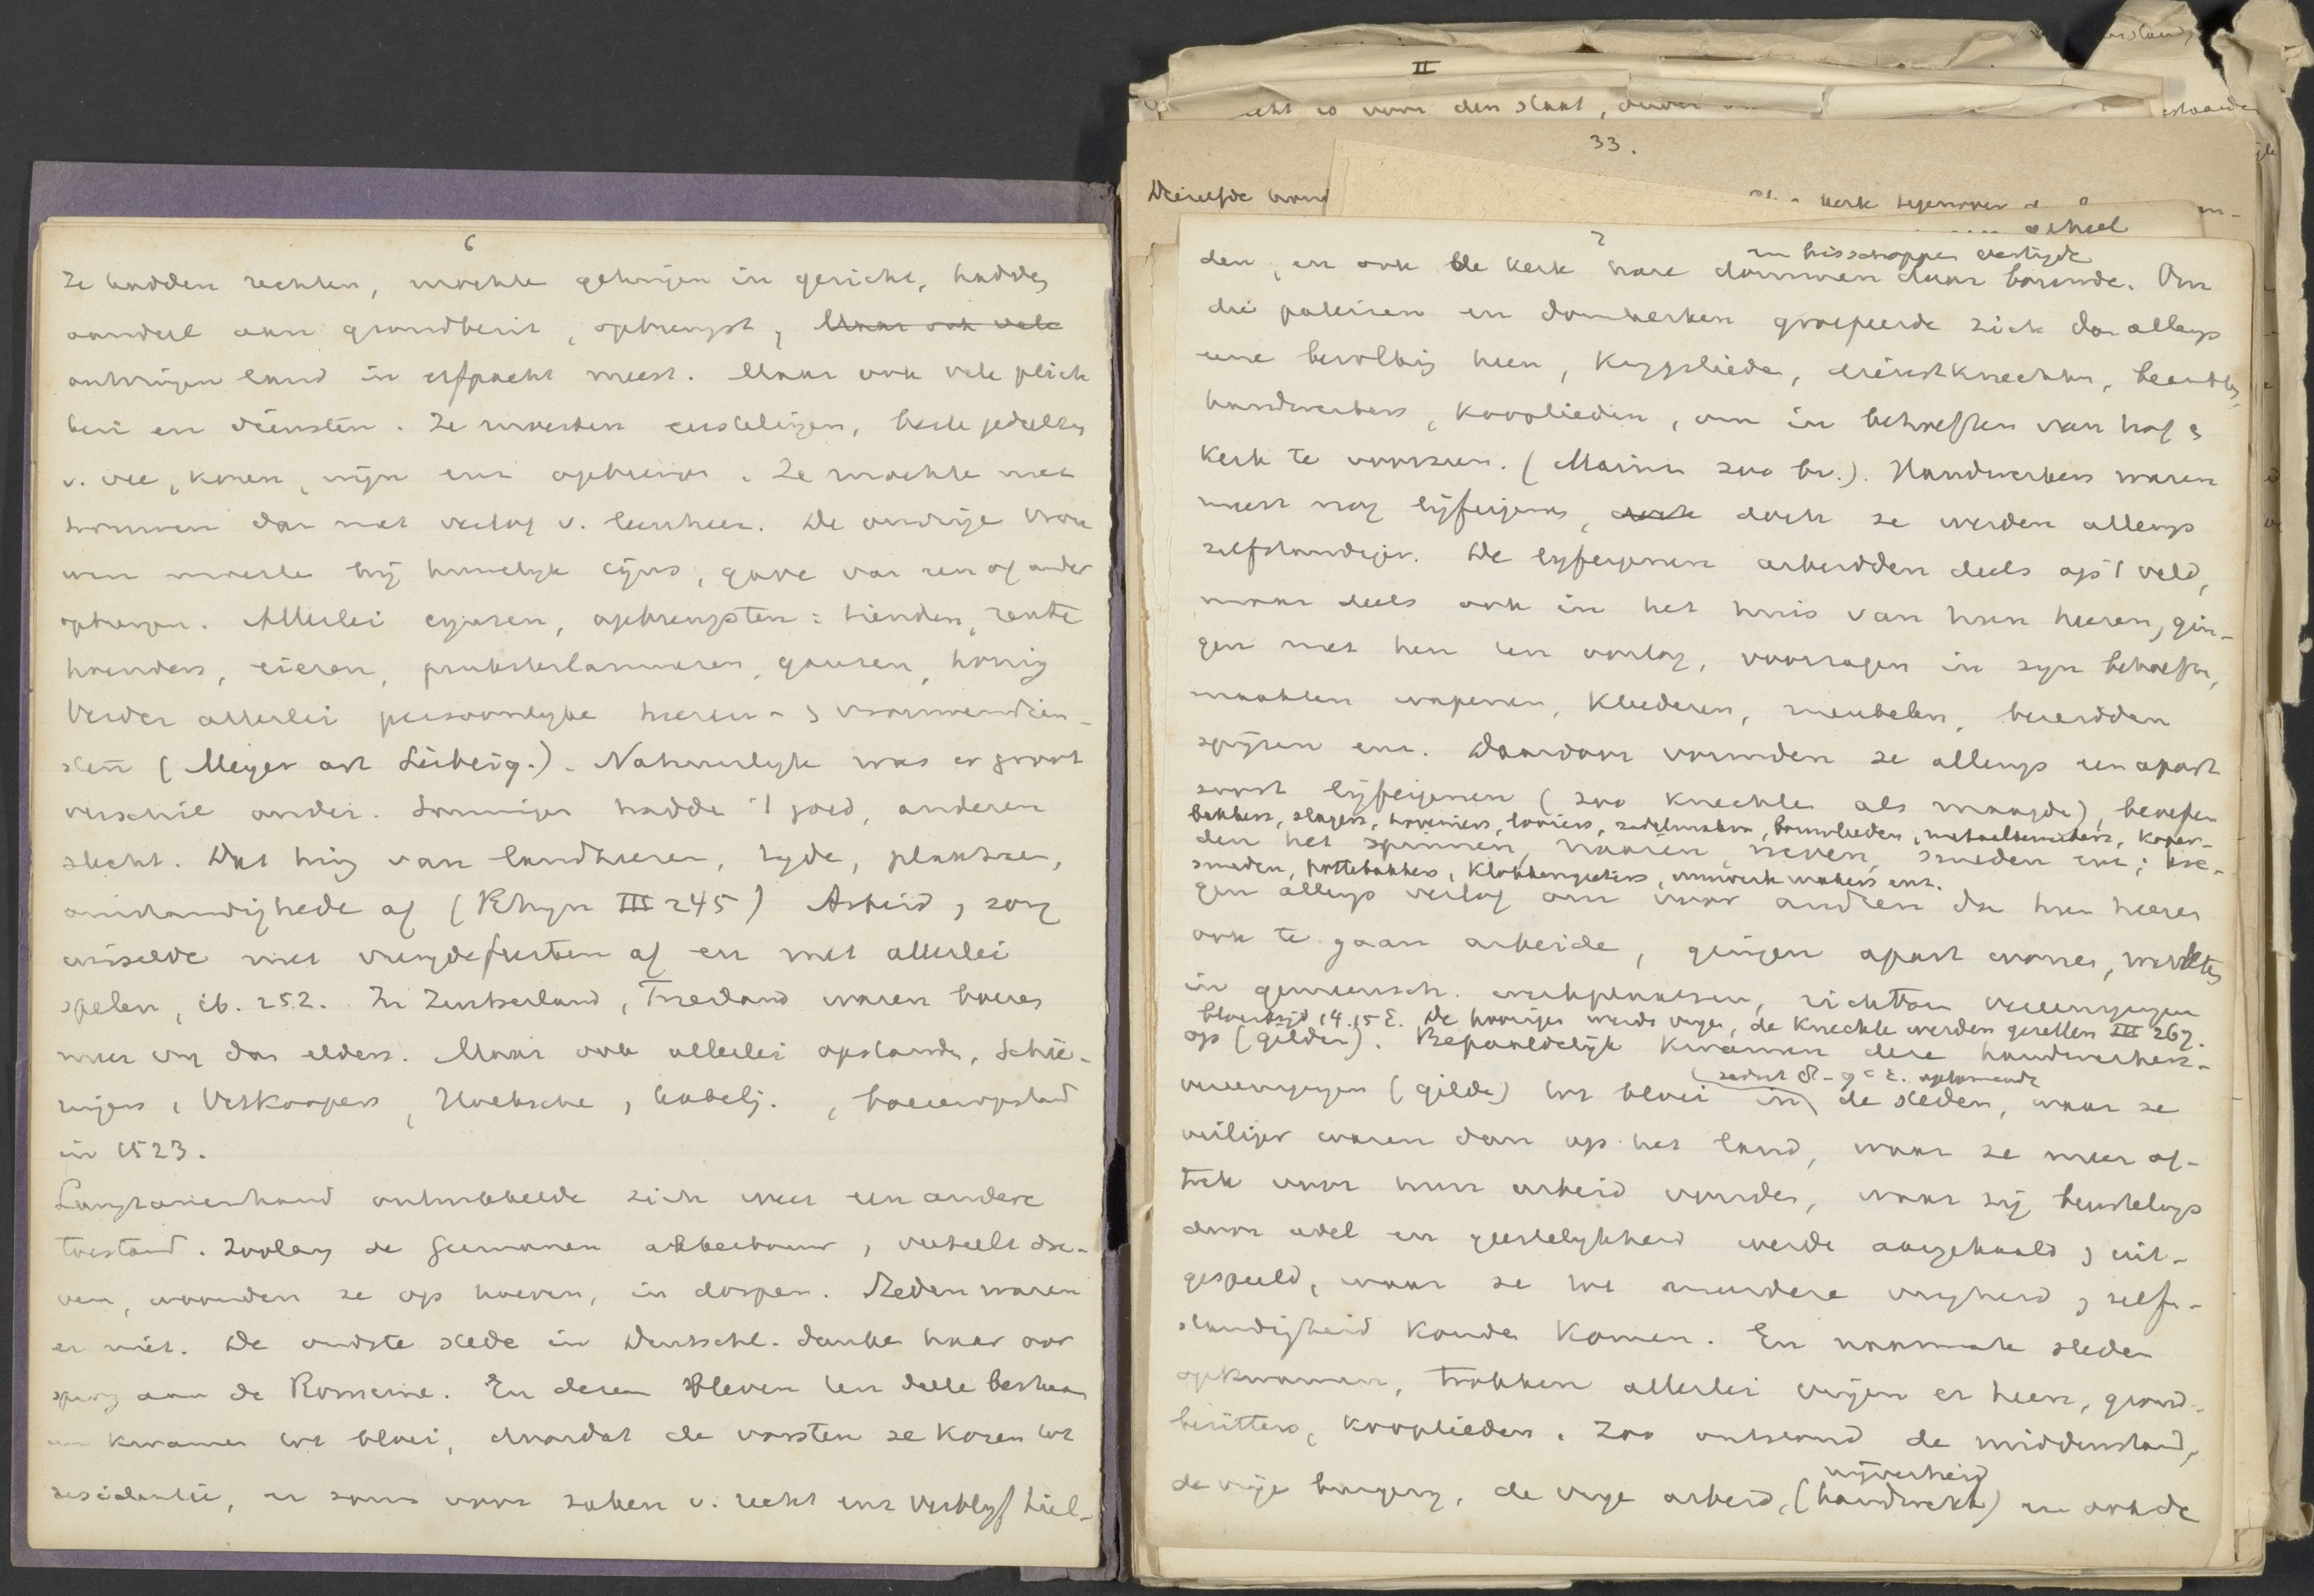 6
Ze hadden rechten, mochten getuigen in gericht, hadden
aandeel aan grondbezit, opbrengst, Maar ook vele
ontvingen land in erfpacht meest. Maar ook vele plich
ten en diensten. Ze moesten eerstelingen, beste gedeelten
v. vee, koren, wijn enz opbrengen. Ze mochten niet
trouwen dan met verlof v. leenheer. De onvrije vrou
wen moesten bij huwelijk cijns, gave van een of ander
opbrengen. Allerlei cynsen, opbrengsten: tienden, rente
hoenders, eieren, lammeren, ganzen, honig
Verder allerlei persoonlyke heeren- & vrouwendien-
sten (Meyer art Leibeig.). Natuurlyk was er groot
verschil onder. Sommigen hadden 't goed, anderen
slecht. Dat hing van landheeren, tyden, plaatsen,
omstandigheden af (Rhyn III 245) Arbeid, zorg
wisselde met vreugdefeesten af en met allerlei
spelen, ib. 252. In Zwitserland, Friesland waren boeren
meer vrij dan elders. Maar ook allerlei opstanden, Schie-
ringers, Vetkoopers, Hoeksche, Kabelj., boerenopstand
in 1523.
Langzamerhand ontwikkelde zich weer een andere
toestand. Zoolang de Germanen akkerbouw, veeteelt dre-
ven, woonden ze op hoeven, in dorpen. Steden waren
er niet. De oudste steden in Deutschl. danken haar oor
sprong aan de Romeinen. En dezen bleven ten deele bestaan
en kwamen tot bloei, doordat de vorsten ze kozen tot
residentie, er soms voor zaken v. recht enz verblyf hiel-
II
voor den staat,
33.
Dezelfde
kerk tegenover
geheel
7
en bisschoppen vestigde
den, en ook de kerk hare dommen daar bouwde. Om
die paleizen en domkerken groepeerde zich dan allengs
eene bevolking heen, krygslieden, dienstknechten, beambten,
handwerkers, kooplieden, om in behoeften van hof &
kerk te voorzien. (Marinu 200 br.). Handwerkers waren
meest nog lijfeigenen, doch doch ze werden allengs
zelfstandiger. De lyfeigenen arbeidden deels op 't veld,
maar deels ook in het huis van hun heeren, gin-
gen met hen ten oorlog, voorzagen in zyn behoeften,
maakten wapenen, kleederen, meubelen, bereidden
spijzen enz. Daardoor vormden ze allengs een apart
soort lijfeigenen (zoo knechten als maagden), beoefen
bakkers, slagers, hoveniers, looiers, zadelmakers, bouwlieden, metaalsmeden, koper-
den het spinnen, naaien, weven, smeden enz; kre-
smeden, pottebakkers, klokkengieters, uurwerkmakers enz.
gen allengs verlof om voor anderen dan hun heeren
ook te gaan arbeiden, gingen apart wonen, werkten
in gemeensch. werkplaatsen, richtten vereenigingen
bloeitijd 14.15 E. De hoorigen werden vrijen, de knechten werden gezellen III 267.
op (gilden). Bepaaldelijk kwamen deze handwerkers-
(sedert 8-9e E. opkomende
vereenigingen (gilden) tot bloei in de steden, waar ze
veiliger waren dan op het land, waar ze meer af-
trek voor hun arbeid vonden, waar zij beurtelings
door adel en geestelykheid werden aangehaald & uit-
gespeeld, waar ze tot meerdere vryheid & zelf-
standigheid konden komen. En naarmate steden
opkwamen, trokken allerlei vrijen er heen, grond-
bezitters, kooplieden. Zoo ontstond de middenstand,
nijverheid
de vrije burgery, de vrye arbeid, (handwerk) en ook de